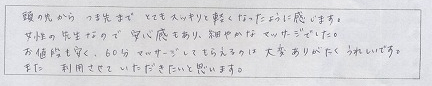 頭の先から つま先まで とてもスッキリと軽くなったように感じます。
女性の先生なので 安心感もあり、細やかなマッサージでした。
お値段も安く、60分マッサージしてもらえるのは 大変ありがたくうれしいです。
また 利用させていただきたいと思います。